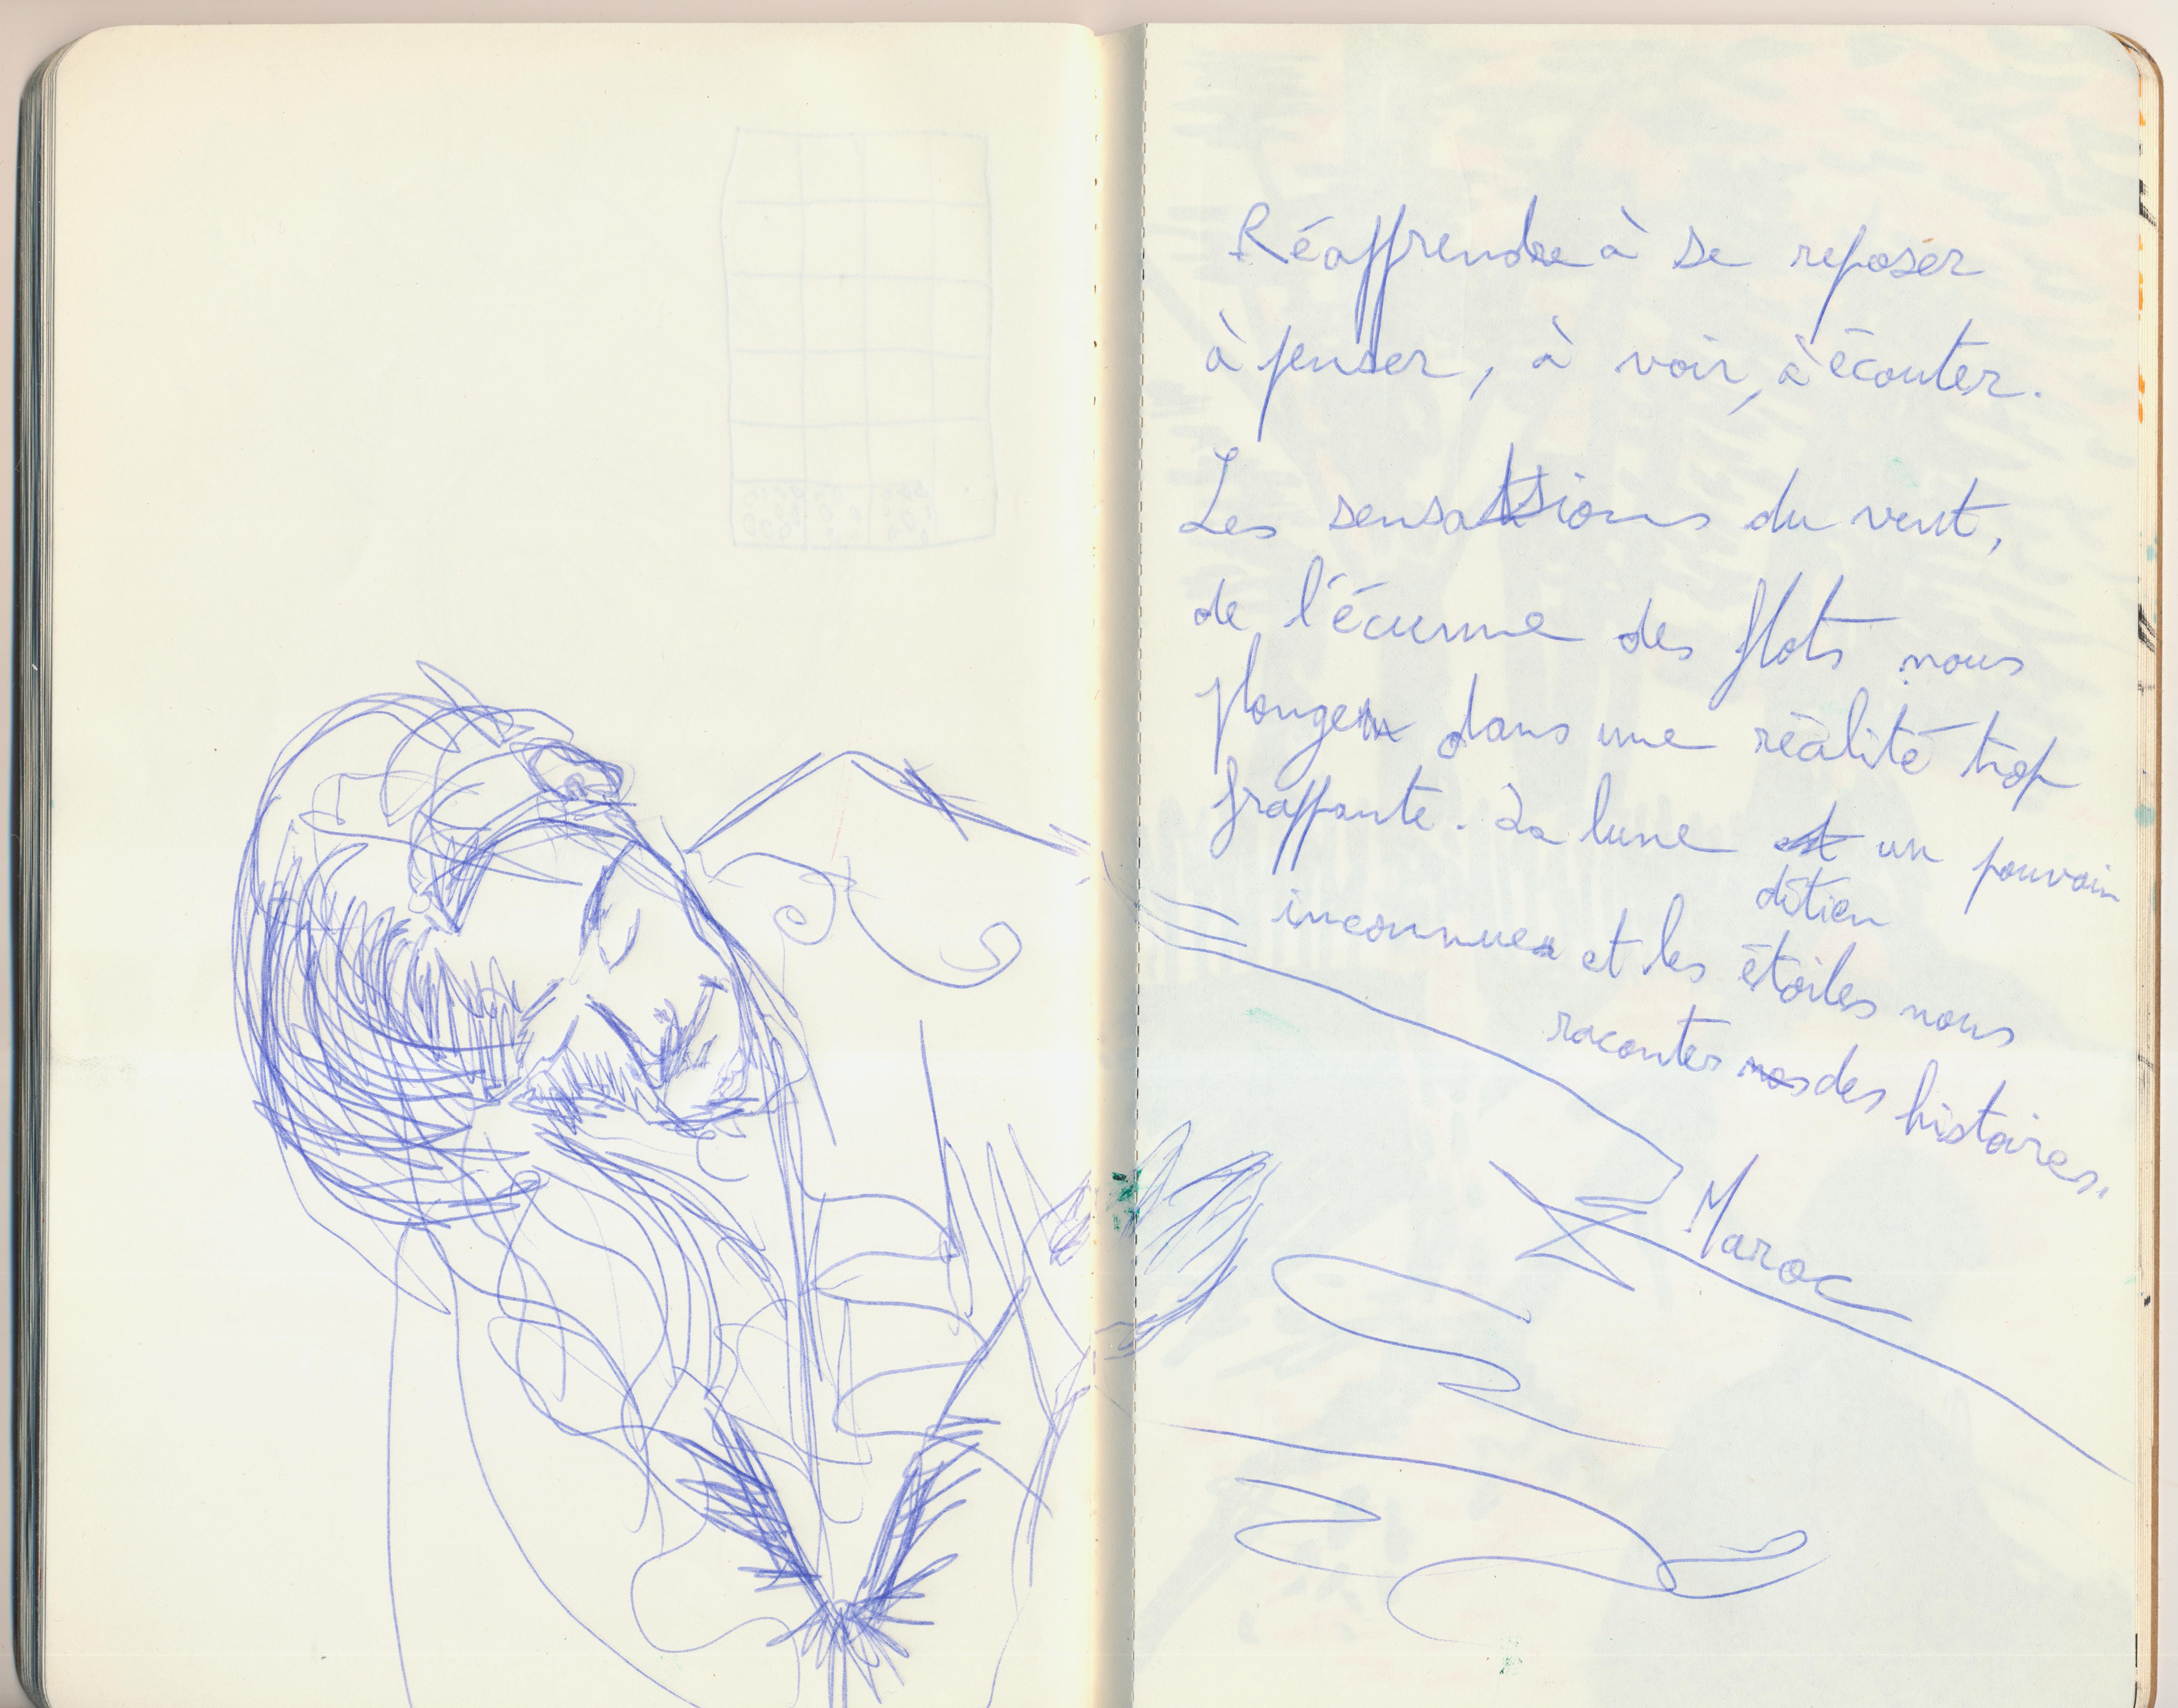 Réapprendre à se reposer
à penser, à voir, à écouter.
Les sensations du vent,
de l'écume des flots nous
plonge dans une réalité trop
frappante. La lune est un pouvoir
inconnue et les étoiles nous
raconter des histoires.
Maroc